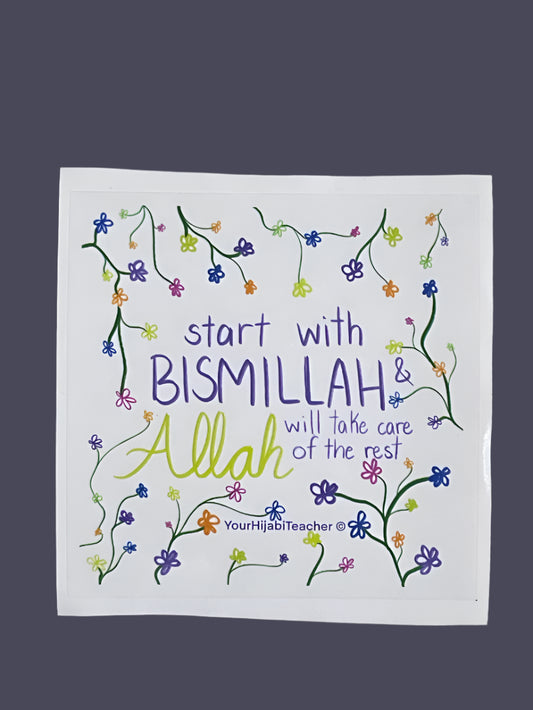 start with
BISMILLAH &
Allah will take care
of the rest
YourHijabiTeacher ©